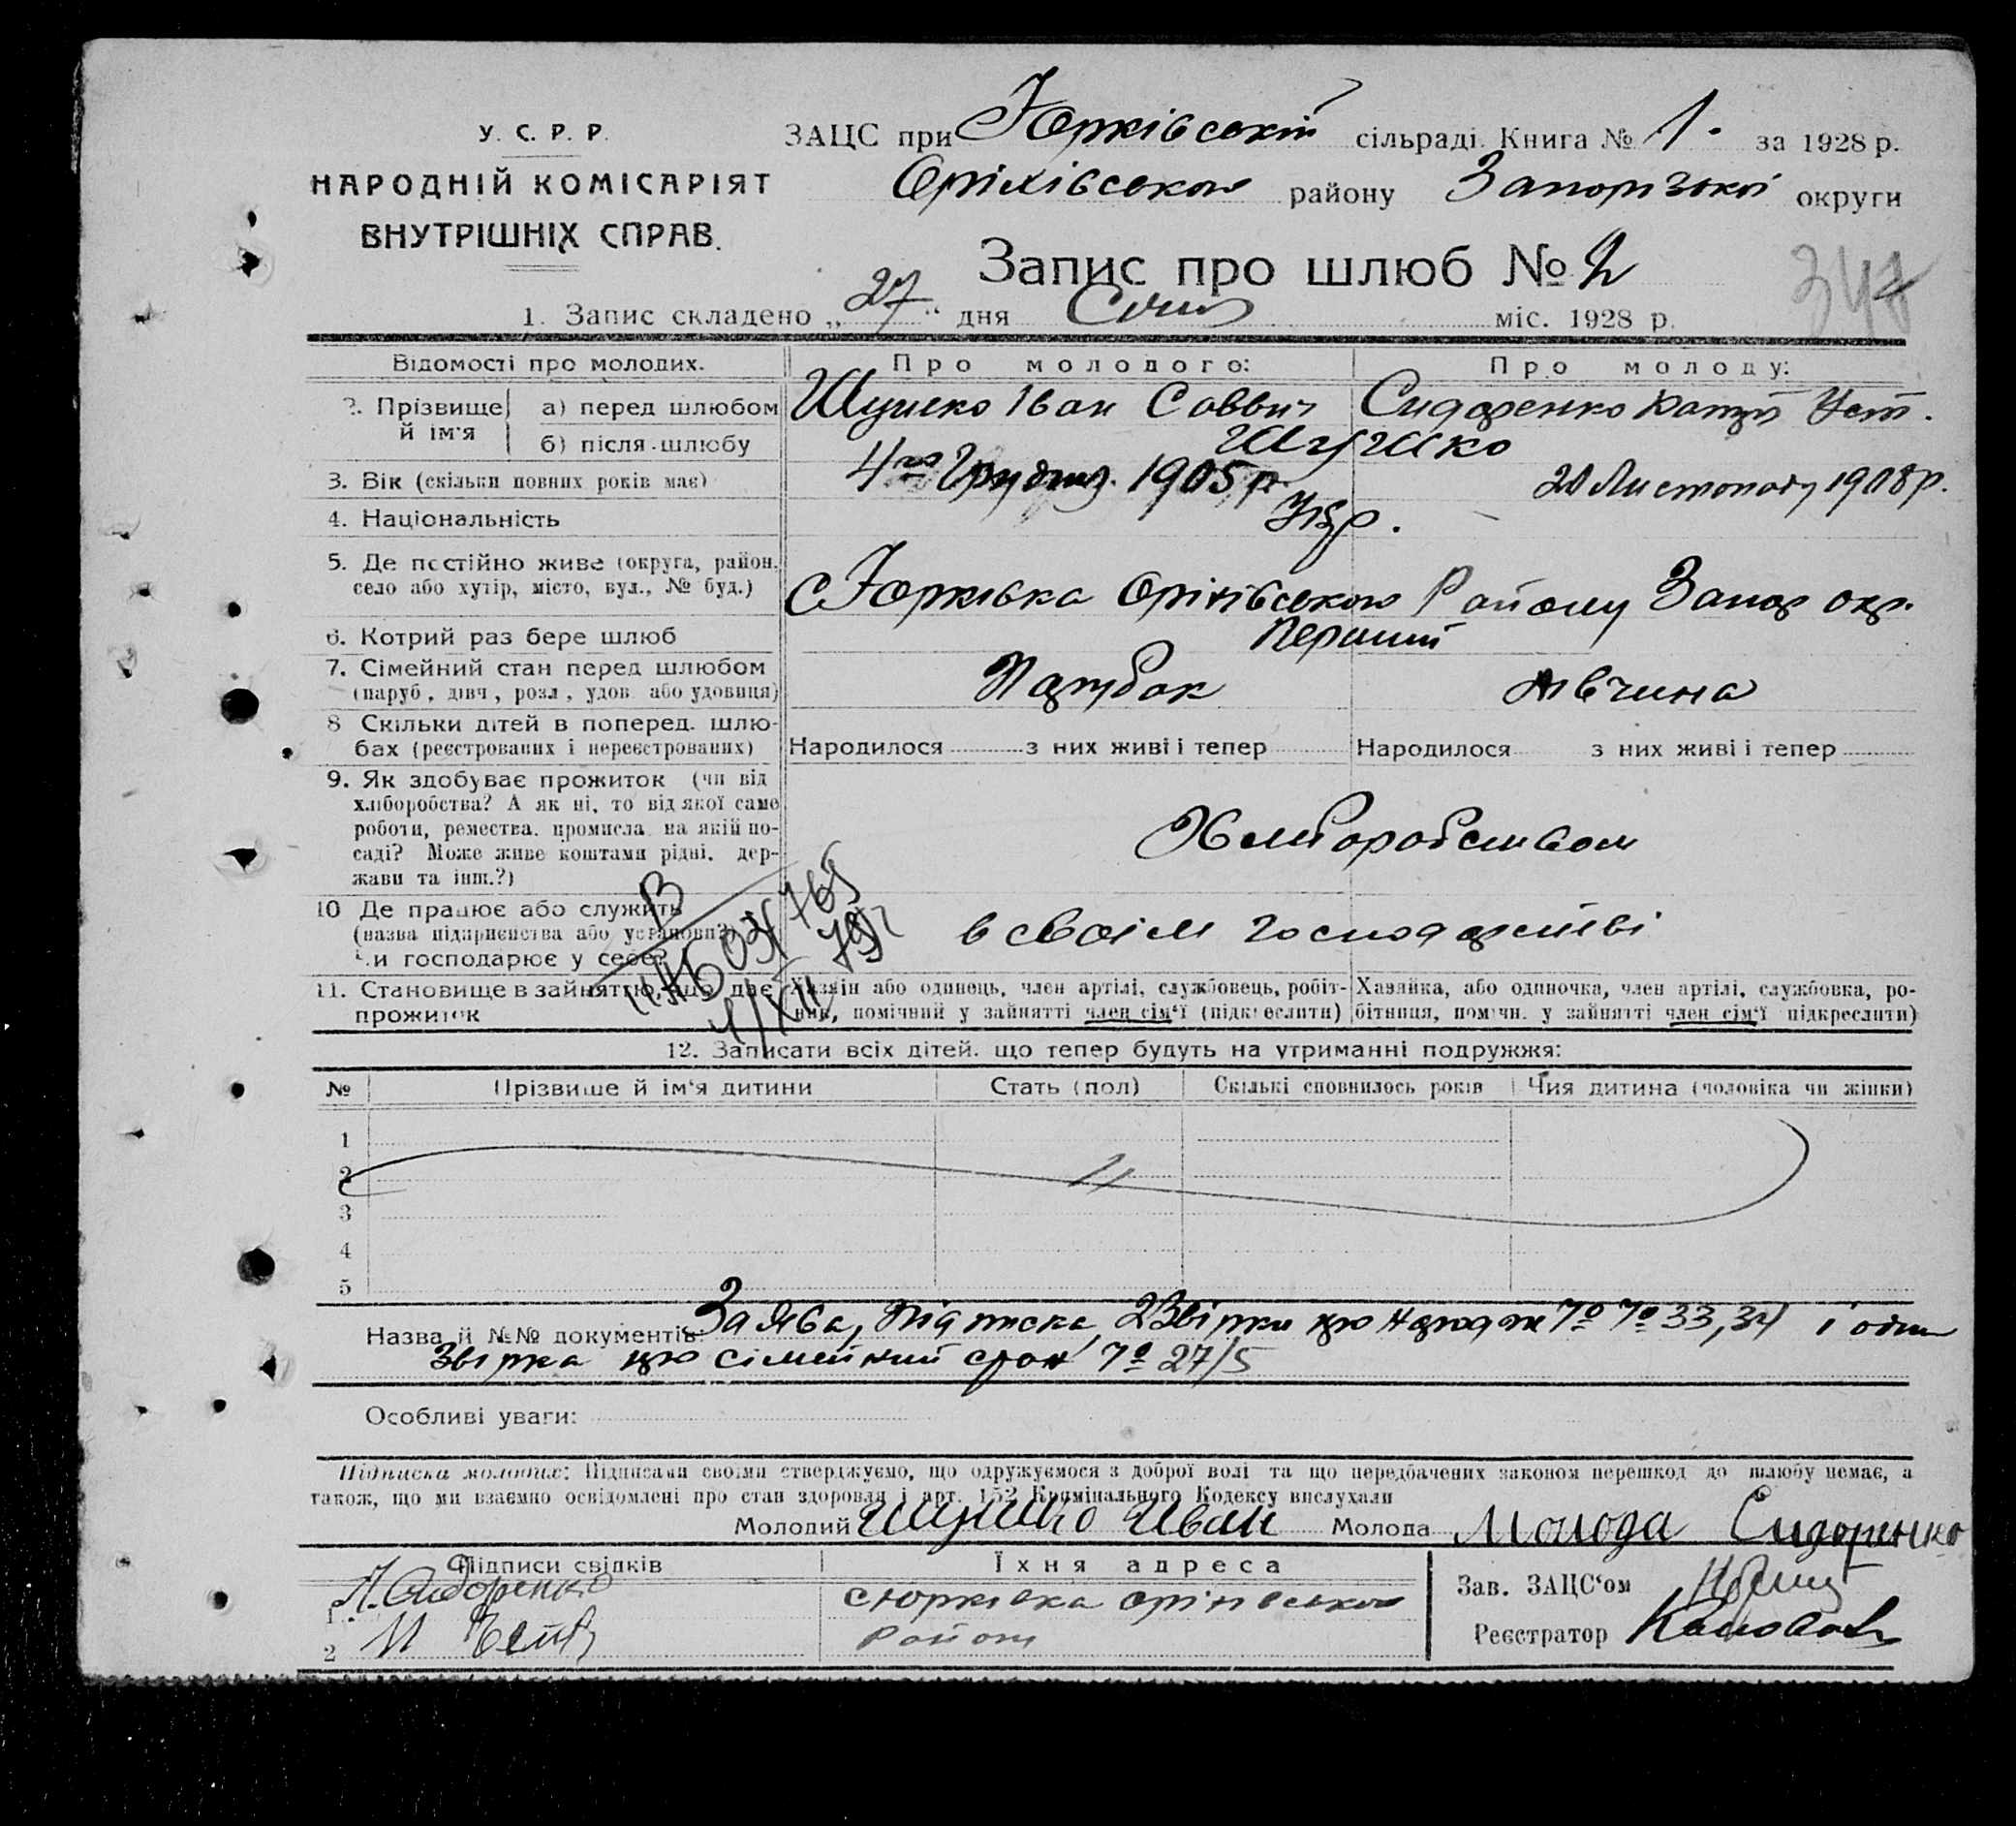 У. С. Р. Р.
НАРОДНІЙ КОМІСАРІЯТ
ВНУТРІШНІХ СПРАВ.
ЗАЦС при Юрківській сільраді. Книга № 1. за 1928 р.
Оріхівського району Запорізької округи
Запис про шлюб № 2
347
1. Запис складено „27" дня Січня міс. 1928 р.
Відомості про молодих.
Про молодого:
Про молоду:
2. Прізвище й ім'я
а) перед шлюбом
Шушко Іван Саввич
Сидоренко
б) після шлюбу
Шушко
3. Вік (скільки повних років має)
4го Грудня 1905 р.
20 Листопаду 1908 р.
4. Національність
Укр.
5. Де постійно живе (округа, район,
село або хутір, місто, вул., № буд.)
С Юрківка Оріхівського Району Запор окр.
6. Котрий раз бере шлюб
Перший
7. Сімейний стан перед шлюбом
(паруб., дівч., розл., удов. або удовиця)
Парубок
Дівчина
8 Скільки дітей в поперед. шлю-
бах (реєстрованих і нереєстрованих)
Народилося з них живі і тепер
Народилося з них живі і тепер
9. Як здобуває прожиток (чи від
хліборобства? А як ні, то від якої само
роботи, ремества, промисла, на якій по-
саді? Може живе коштами рідні, дер-
жави та інш.?)
Хліборобством
10 Де працює або служить
(назва підприємства або установи?)
Чи господарює у себе?
в своїм господарстві
11. Становище в зайняттю, що дає
прожиток
Хазяін або одинець, член артілі, службовець, робіт-
ник, помічний у зайнятті член сім'ї (підкреслити)
Хазяйка, або одиночка, член артілі, службовка, ро-
бітниця, помічн. у зайнятті член сім'ї підкреслити)
12. Записати всіх дітей, що тепер будуть на утриманні подружжя:
№
Прізвище й ім'я дитини
Стать (пол)
Скількі сповнилось років
Чия дитина (чоловіка чи жінки)
1
2
3
4
5
Назва й №№ документів: Заява, Підписка, 2 Звірки про народж № № 33, 34 і одна
Звірка про сімейний стан № 27/5
Особливі уваги:
Підписка молодих: Підписами своїми стверджуємо, що одружуємося з доброї волі та що передбачених законом перешкод до шлюбу немає, а
також, що ми взаємно освідомлені про стан здоровля і арт. 152 Кримінального Кодексу вислухали
Молодий Шушко Иван Молода Молода Сидоренко
Підписи свідків
Їхня адреса
1. Сидоренко
2
с Юрківка Оріхівського
Району
Зав. ЗАЦС'ом
Реєстратор